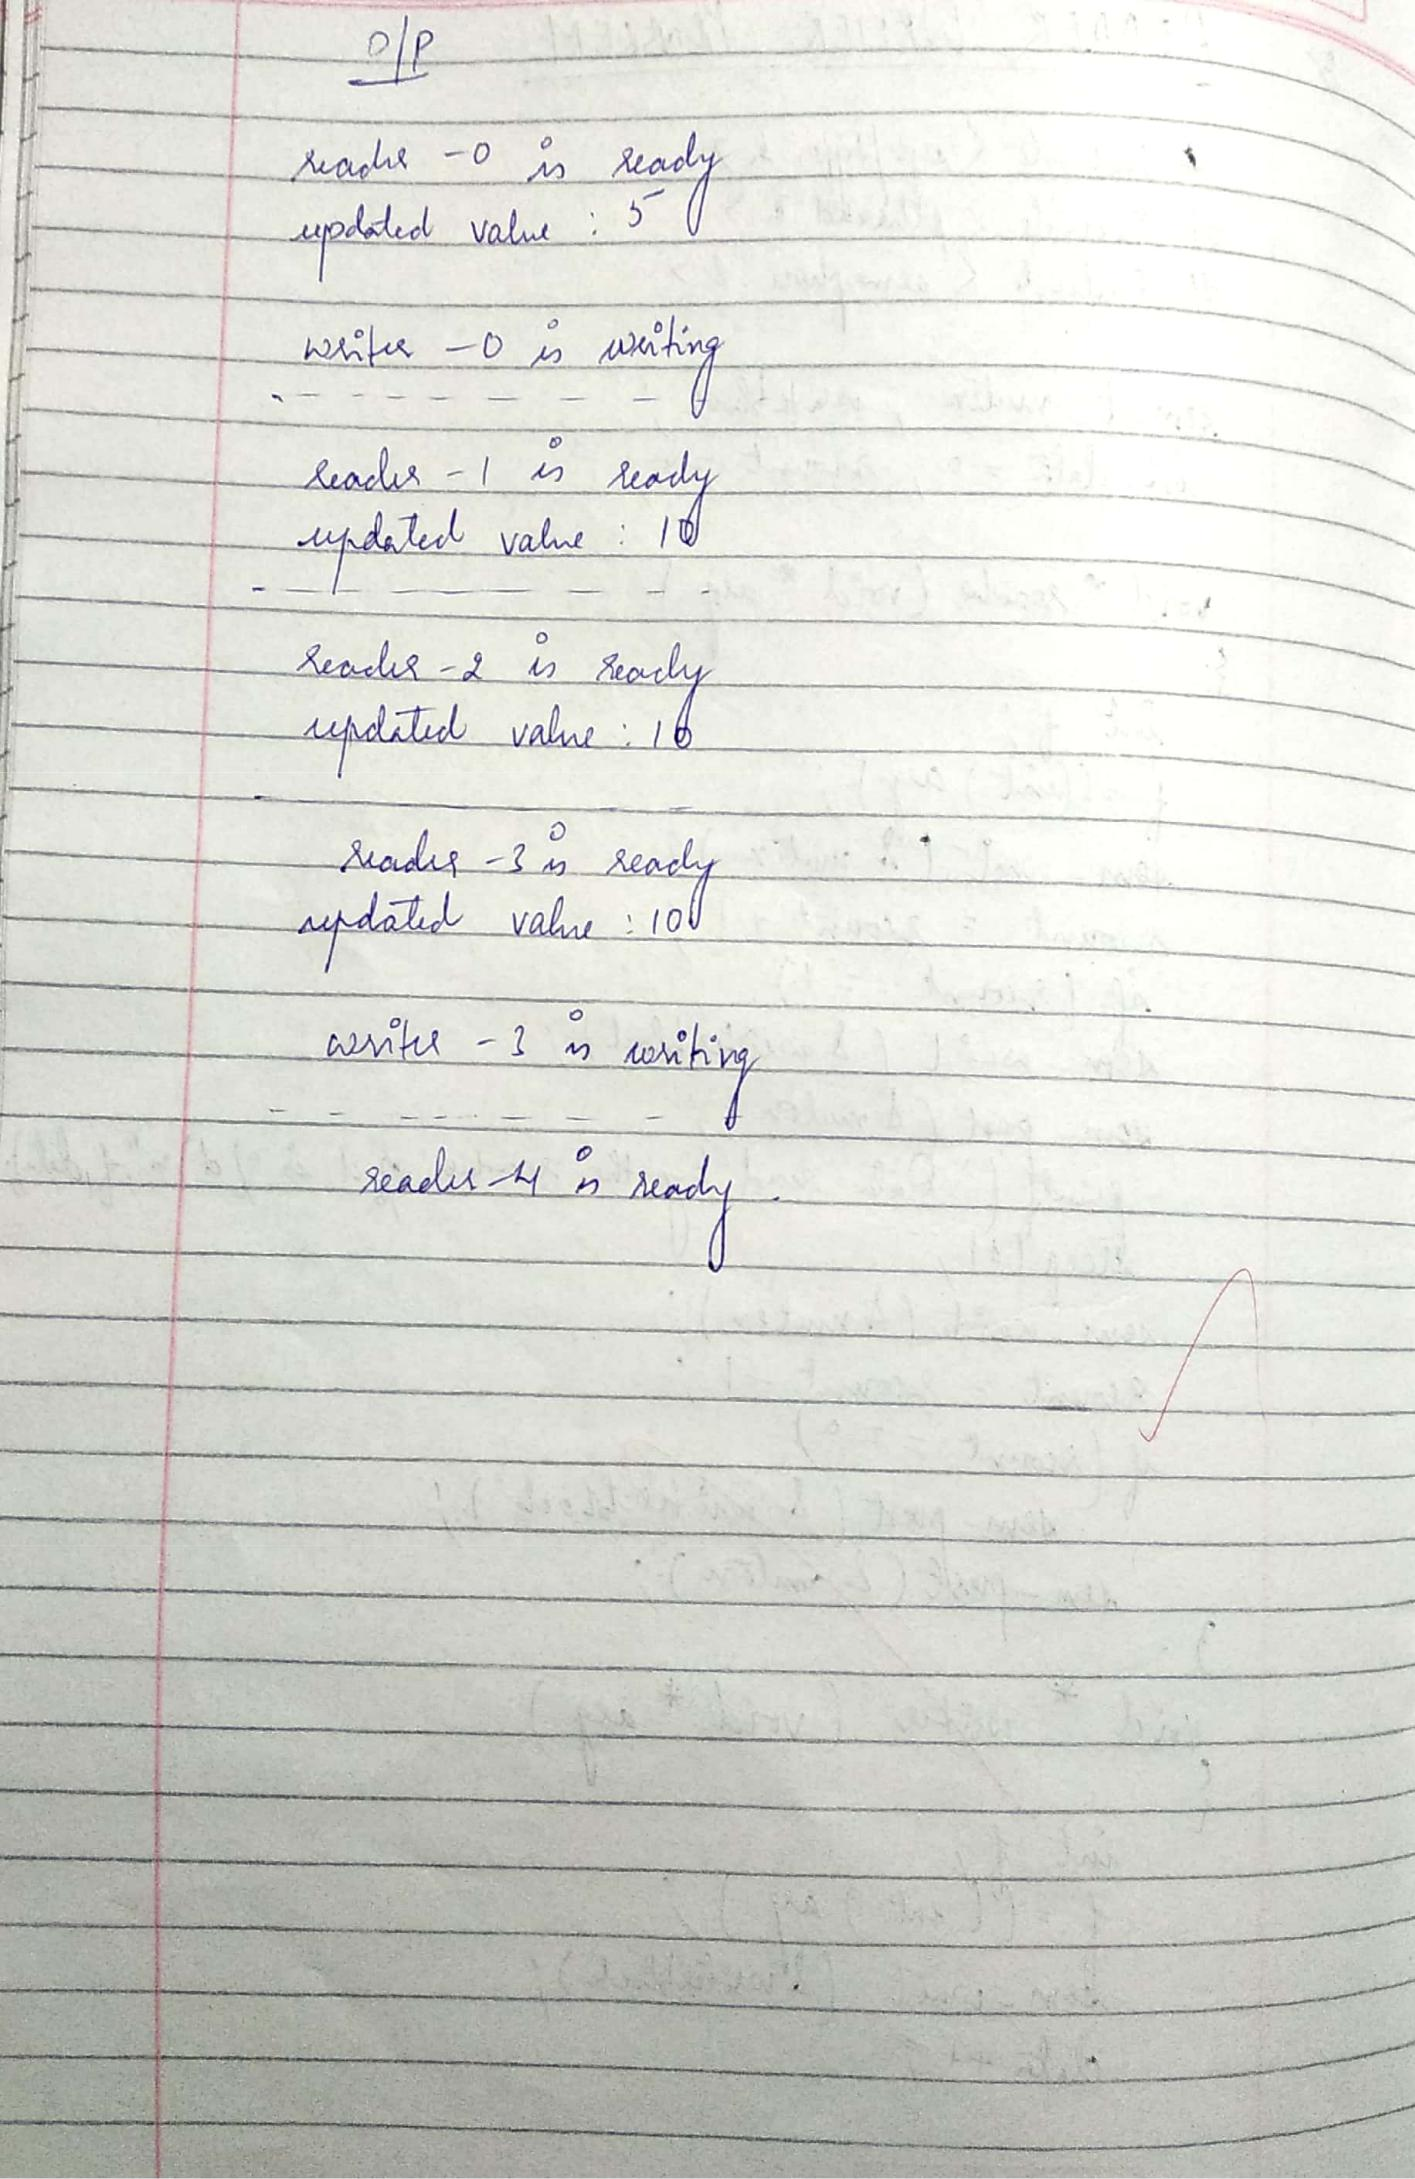 O/P
reader - 0 is ready
updated value : 5
writer - 0 is writing
- - - - - - - -
reader - 1 is ready
updated value : 10
- - - - - - - -
reader - 2 is ready
updated value : 10
reader - 3 is ready
updated value : 10
writer - 3 is writing
- - - - - - - -
reader - 4 is ready .